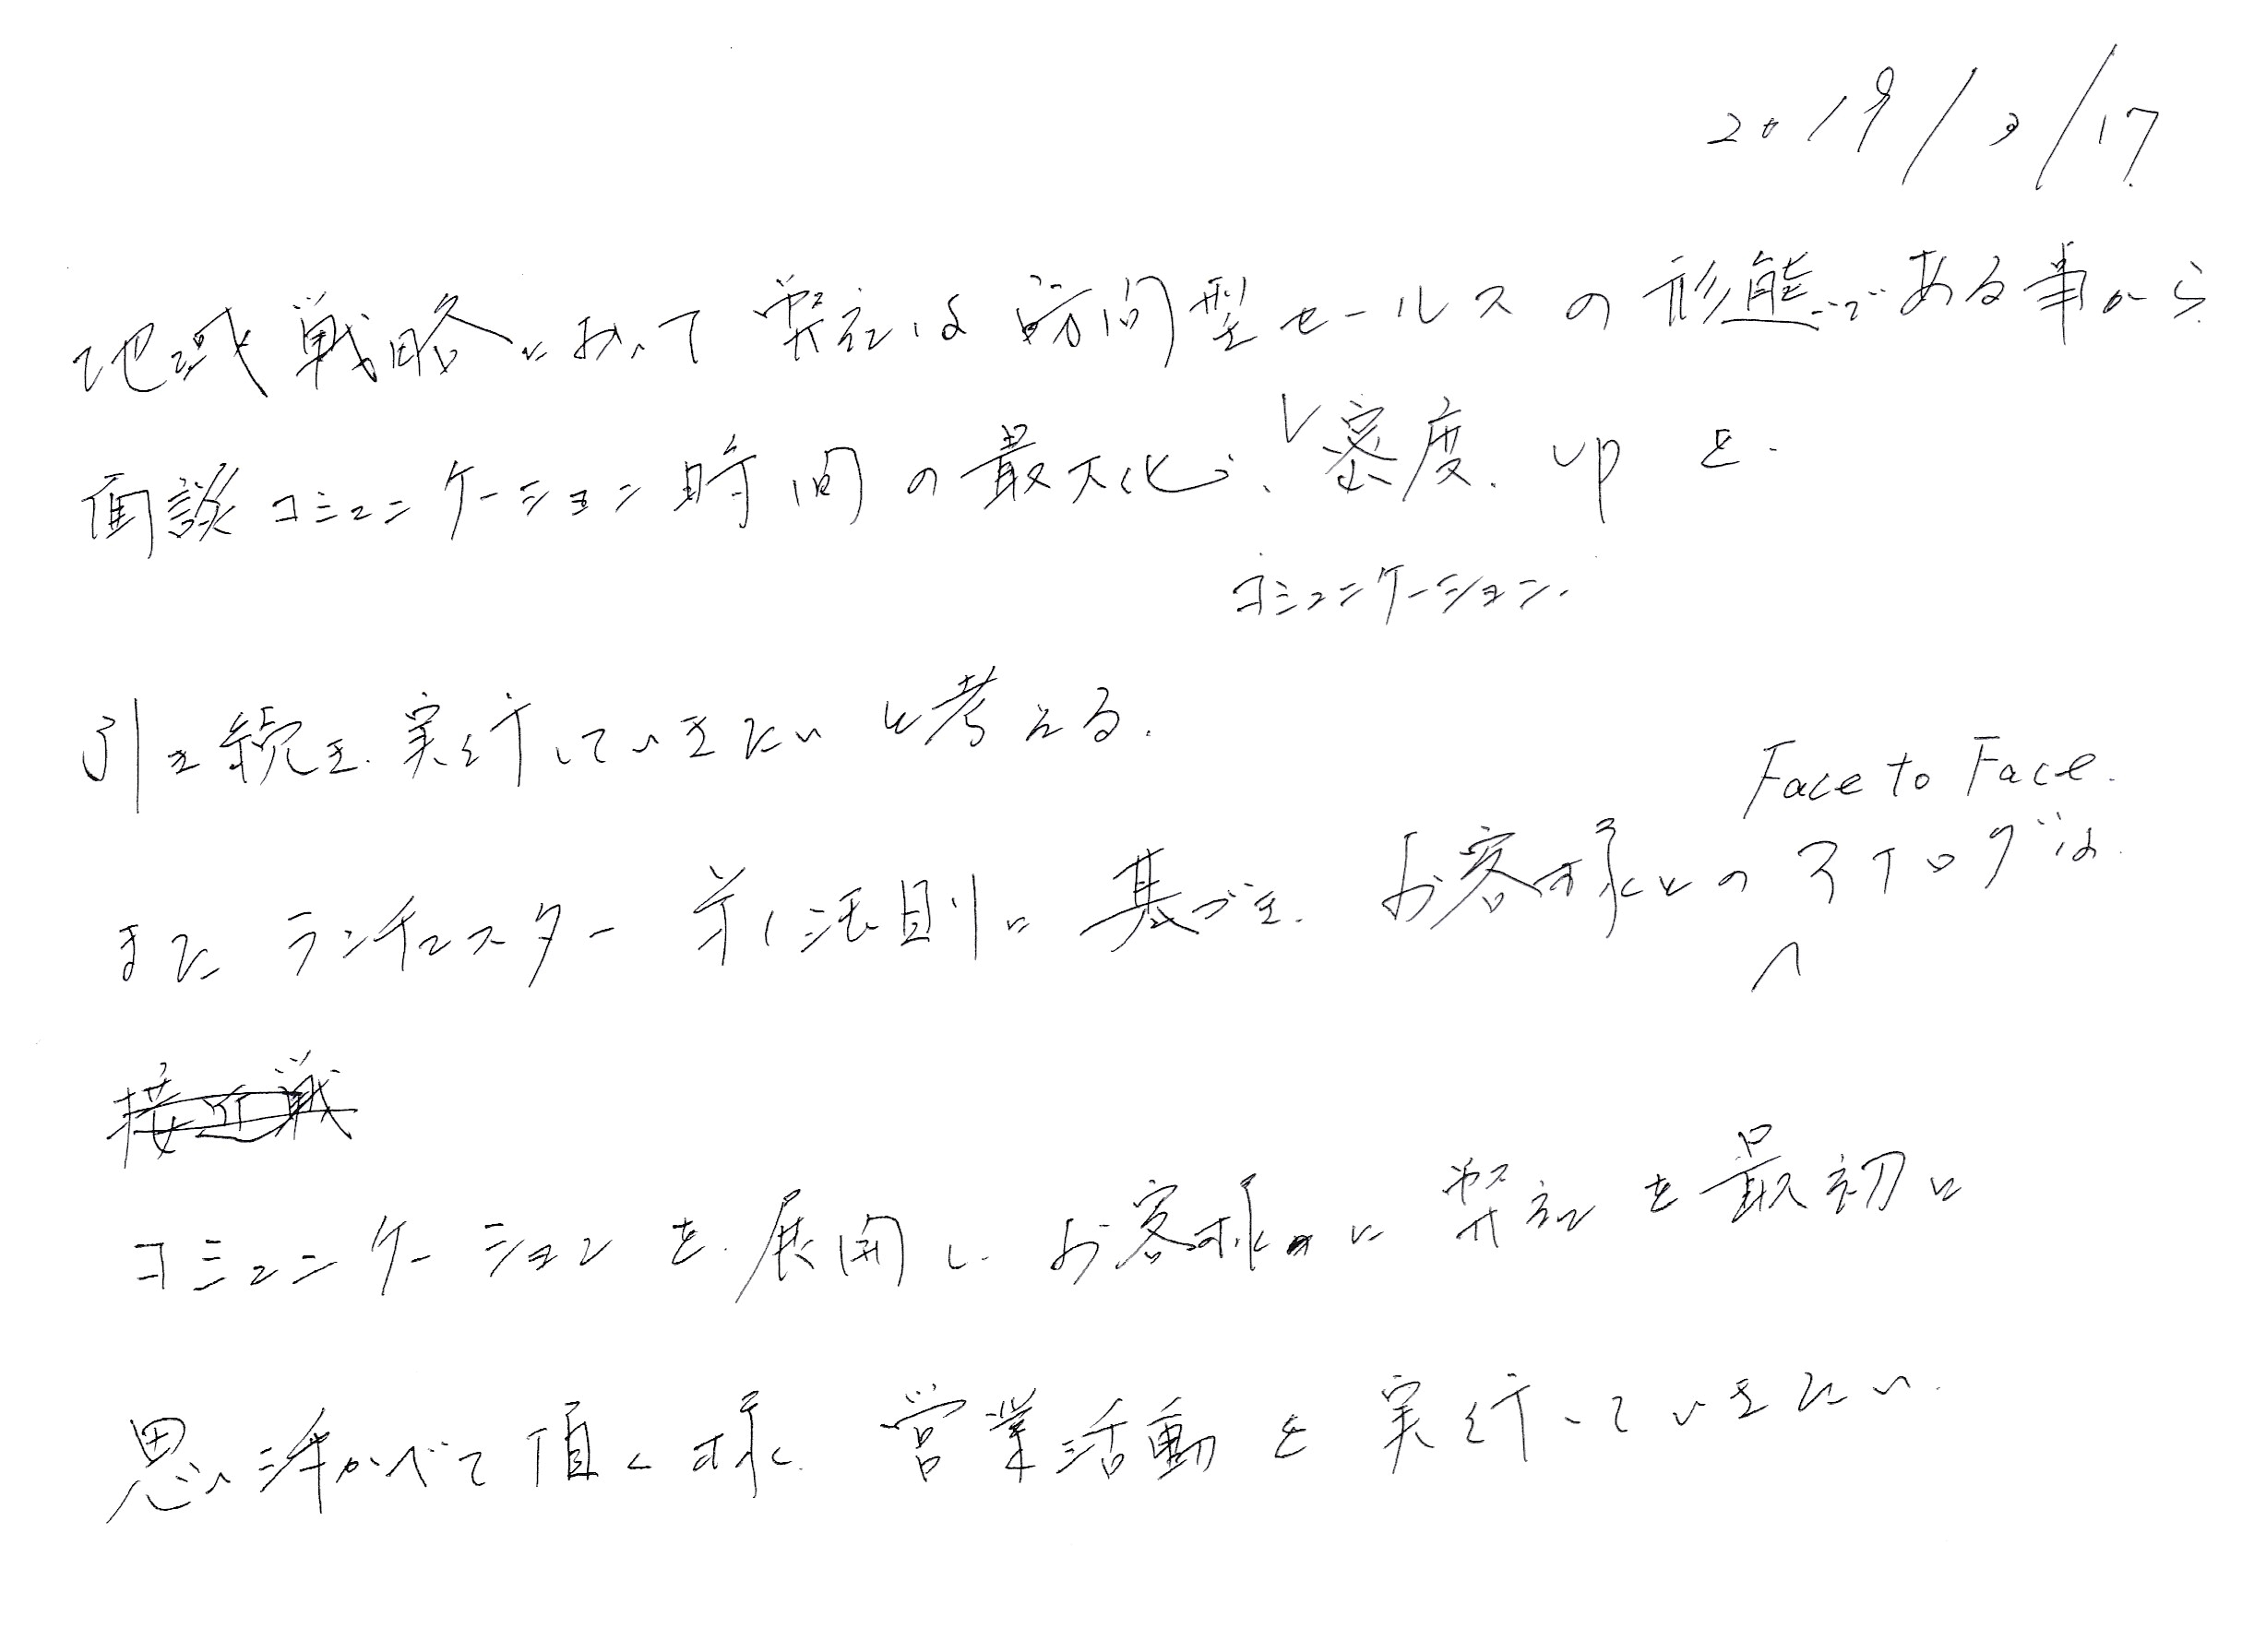 2019/3/17
地域戦略において弊社は訪問型セールスの形態である事から
面談コミュニケーション時間の最大化、密度.upを.
コミュニケーション.
引き続き.実行していきたいと考える.
Face to Face.
また ランチェスター 第1法則に基づき.お客様との アイログは.
接近戦
コミュニケーションを.展開し.お客様に弊社を最初に
思い浮かべて頂く様.営業活動を実行していきたい.